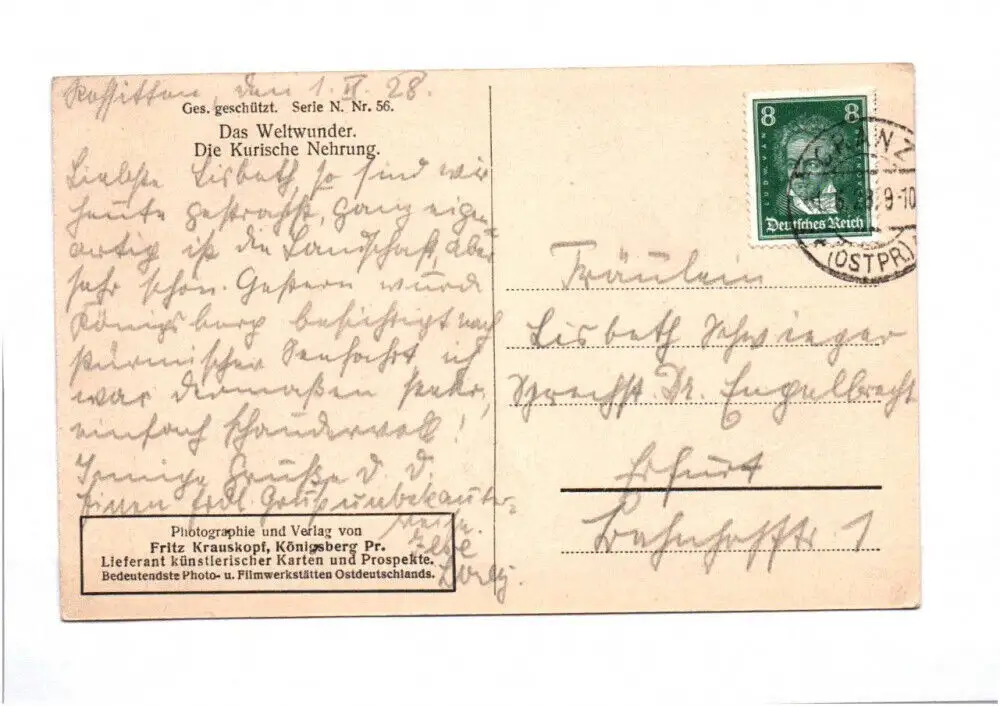 Rossitten, den 1. VI. 28.
Ges. geschützt. Serie N. Nr. 56.
Das Weltwunder.
Die Kurische Nehrung.
Liebste Lisbeth, so sind wir
heute gestrahlt, ganz eigen
artig ist die Landschaft, aber
sehr schön. Gestern wurde
Königsberg besichtigt nach
stürmischer Seefahrt, ich
war dermaßen
einfach schaudervoll!
Innige Grüße D. D.
Einen frdl. Gruß unbekannter-
weise.
Else
Photographie und Verlag von
Fritz Krauskopf, Königsberg Pr.
Lieferant künstlerischer Karten und Prospekte.
Bedeutendste Photo- u. Filmwerkstätten Ostdeutschlands.
8 8
LUDWIG VAN
Deutsches Reich
CRANZ
6.28. 9-10
(OSTPR.)
Fräulein
Lisbeth Schwieger
Sprechst. Dr. Engelbrecht
Erfurt
Bahnhofstr 1